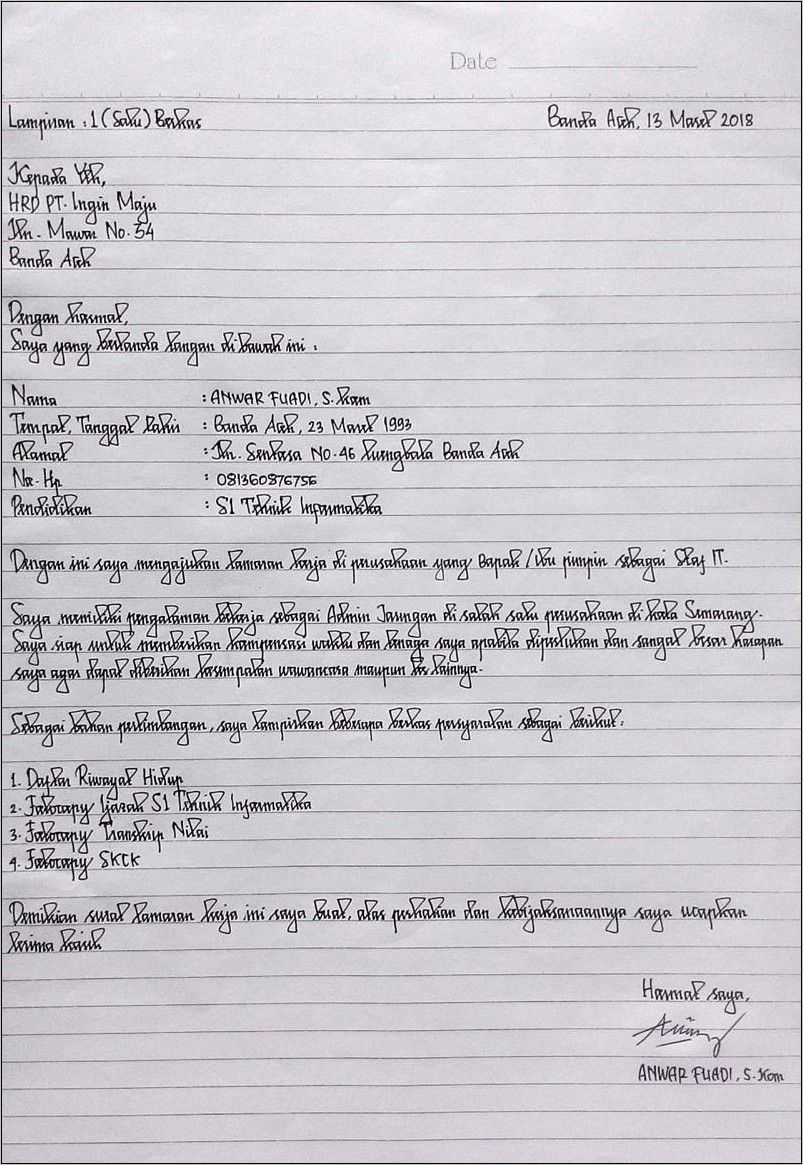 Date
Lampiran : 1 (Satu) Berkas
Banda Aceh, 13 Maret 2018
Kepada Yth,
HRD PT. Ingin Maju
Jln. Mawar No. 54
Banda Aceh
Dengan hormat,
Saya yang bertanda tangan di bawah ini :
Nama : ANWAR FUADI, S.Kom
Tempat, Tanggal Lahir : Banda Aceh, 23 Maret 1993
Alamat : Jln. Sentosa No. 46 Luengbata Banda Aceh
No. Hp : 081360876756
Pendidikan : S1 Teknik Informatika
Dengan ini saya mengajukan lamaran kerja di perusahaan yang Bapak / Ibu pimpin sebagai Staf IT.
Saya memiliki pengalaman bekerja sebagai Admin Jaringan di salah satu perusahaan di kota Semarang.
Saya siap untuk memberikan kompensasi waktu dan tenaga saya apabila diperlukan dan sangat besar harapan
saya agar dapat diberikan kesempatan wawancara maupun tes lainnya.
Sebagai bahan pertimbangan, saya lampirkan beberapa berkas persyaratan sebagai berikut :
1. Daftar Riwayat Hidup
2. Fotocopy Ijazah S1 Teknik Informatika
3. Fotocopy Transkip Nilai
4. Fotocopy SKCK
Demikian surat lamaran kerja ini saya buat, atas perhatian dan kebijaksanaannya saya ucapkan
terima kasih
Hormat saya,
ANWAR FUADI, S.Kom